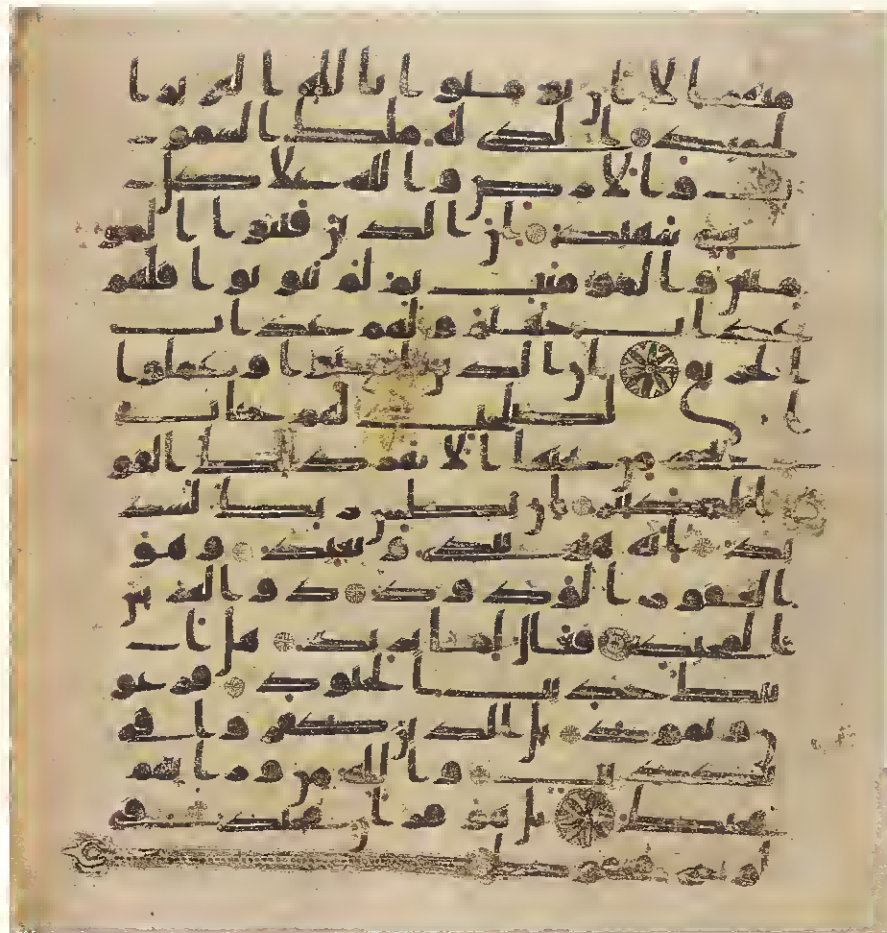 منهم الا ان يومنوا بالله العزيز ا
لحميد الذي له ملك السمو
ت والارض والله على كل
شي شهيد ان الذين فتنوا المو
منين والمومنت ثم لم يتوبوا فلهم
عذاب جهنم ولهم عذاب
الحريق ان الذين امنوا وعملوا
الصلحت لهم جنت
تجري من تحتها الانهر ذلك الفو
ز الكبير ان بطش ربك لشد
يد انه هو يبدي ويعيد وهو
الغفور الودود ذو العرش
المجيد فعال لما يريد هل ات
يك حديث الجنود فرعو
ن وثمود بل الذين كفروا في
تكذيب والله من ورايهم
محيط بل هو قران مجيد في
لوح محفوظ